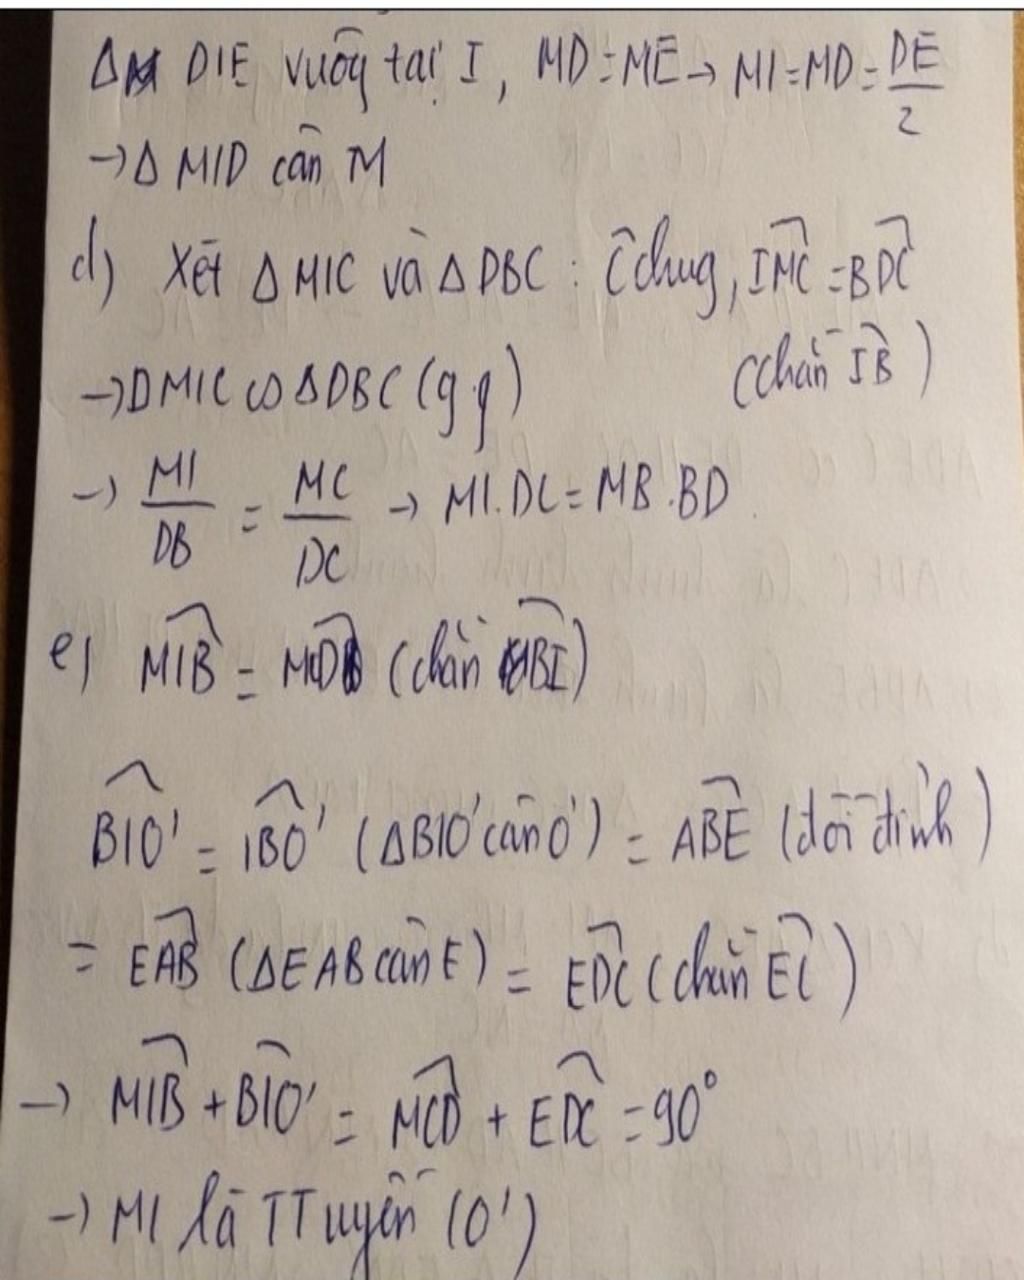 Δ DIE vuông tại I, MD = ME → MI = MD = DE/2
→ Δ MID cân M
d) Xét Δ MIC và Δ DBC : Ĉ chug, IMC = BDC
(chắn IB)
→ DMIC ∽ ΔDBC (g.g)
→ MI/DB = MC/DC → MI.DC = MB.BD
e) MIB = (chắn BI)
BIO' = IBO' (ΔBIO' cân O') = ABE (đối đỉnh)
= EAB (ΔEAB cân E) = EDC (chắn EC)
→ MIB + BIO' = MCD + EDC = 90°
→ MI là TTuyến (O')